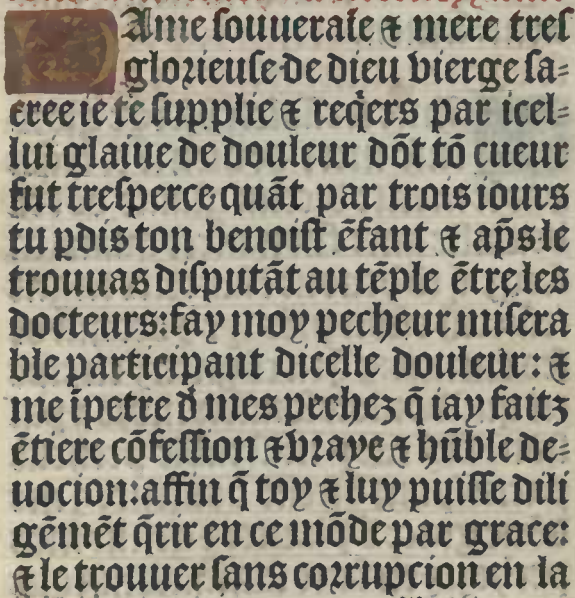 Dame souueraīe ⁊ mere tres
glorieuse de dieu vierge sa-
cree ie te supplie ⁊ req̄rs par icel-
lui glaiue de douleur dōt tō cueur
fut tresperce quāt par trois iours
tu pdis ton benoist ēfant ⁊ ap̄s le
trouuas disputāt au tēple ētre les
docteurs: fay moy pecheur misera
ble participant dicelle douleur: ⁊
me īpetre d̄ mes pechez q̄ iay faitz
ētiere cōfession ⁊ vraye ⁊ hūble de-
uocion: affin q̄ toy ⁊ luy puisse dili
gēmēt q̄rir en ce mōde par grace:
⁊ le trouuer sans corrupcion en la